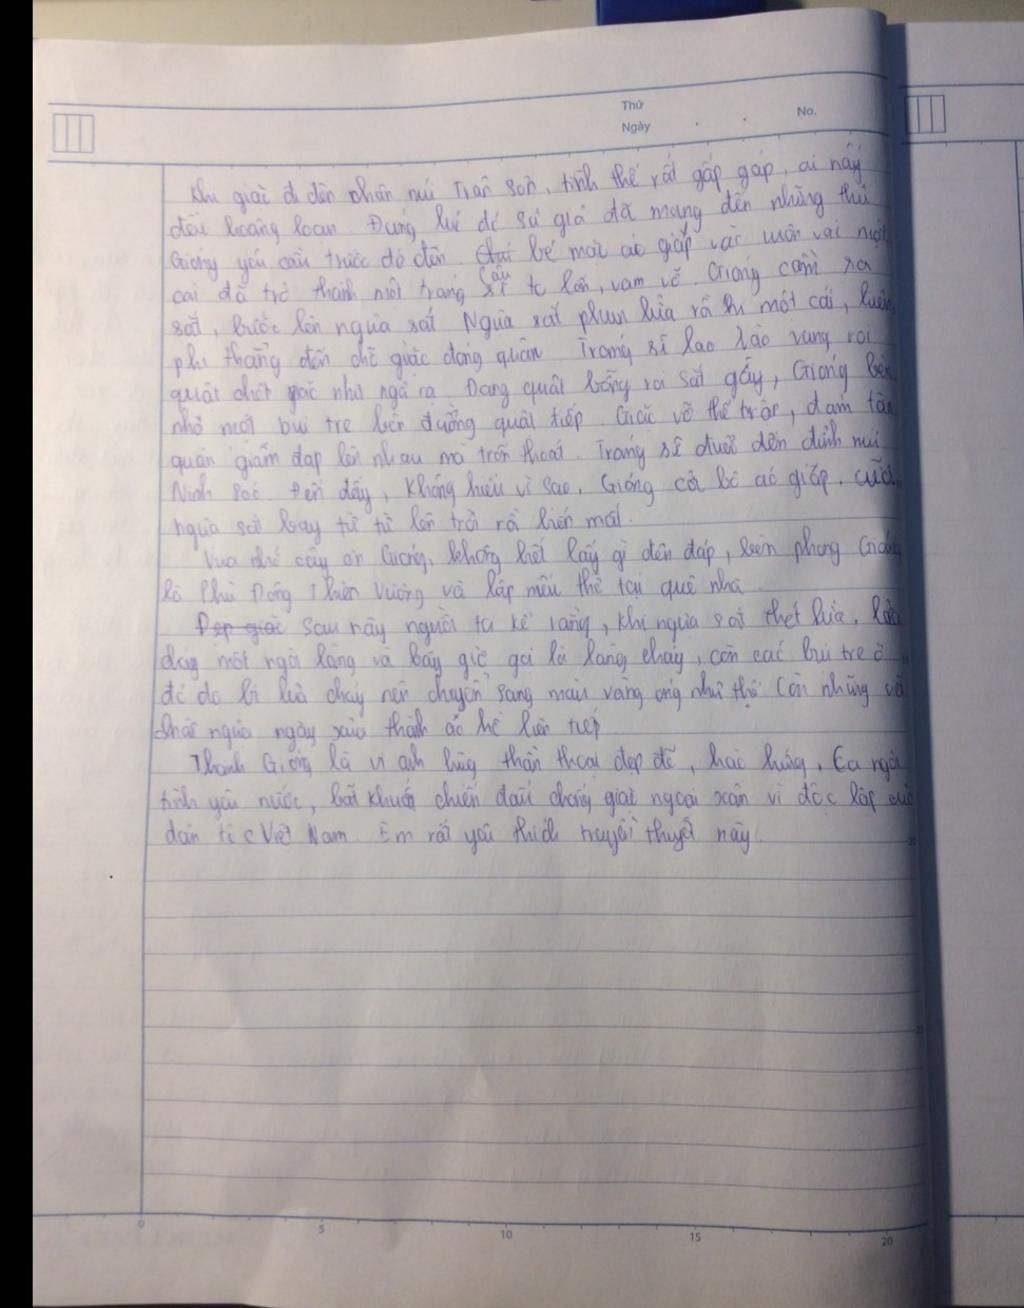 Thứ
Ngày
No.
Khi giặc đi đến chân núi Trâu Sơn, tình thế rất gấp gáp, ai nấy
đều hoảng loạn. Đúng lúc đó sứ giả đã mang đến những thứ
Gióng yêu cầu trước đó đến. Chú bé mặc áo giáp vào vươn vai một
cái đã trở thành một tráng sĩ to lớn, vạm vỡ. Gióng cầm
sắt, bước lên ngựa sắt. Ngựa sắt phun lửa rồi hí một cái, liền
phi thẳng đến chỗ giặc đóng quân. Tráng sĩ lao vào vung roi
quật chết giặc như ngả rạ. Đang quật bỗng roi sắt gãy, Gióng bèn
nhổ một bụi tre bên đường quật tiếp. Giặc vỡ thế trận, đám tàn
quân giẫm đạp lên nhau mà trốn thoát. Tráng sĩ đuổi đến đỉnh núi
Ninh Sóc. Đến đấy, không hiểu vì sao, Gióng cởi bỏ áo giáp,
ngựa sắt bay từ từ lên trời rồi biến mất.
Vua nhớ công ơn Gióng, không biết lấy gì đền đáp, bèn phong Gióng
là Phù Đổng Thiên Vương và lập miếu thờ tại quê nhà.
Dẹp giặc Sau này người ta kể rằng, khi ngựa sắt thét lửa, lửa
đã một ngôi làng và bây giờ gọi là làng cháy, còn các bụi tre ở
đó do bị lửa cháy nên chuyển sang màu vàng óng như thế. Còn những
chân ngựa ngày xưa thành ao hồ liên tiếp.
Thánh Gióng là vị anh hùng thần thoại đẹp đẽ, hào hùng. Ca ngợi
tình yêu nước, bất khuất chiến đấu chống giặc ngoại xâm vì độc lập của
dân tộc Việt Nam. Em rất yêu thích truyền thuyết này.
0
5
10
15
20